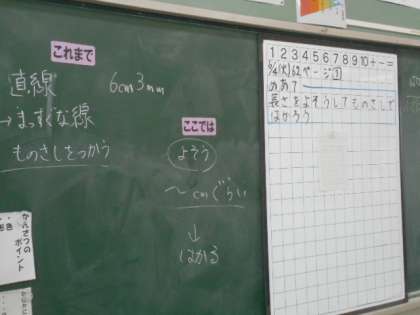 これまで
直線 6cm3mm
→まっすぐな線
ものさしをつかう
ここでは
よそう
〜cmぐらい
↓
はかる
かんさつの
ポイント
1 2 3 4 5 6 7 8 9 10 + - =
6/4(火)62ページ1
めあて
長さをよそうしてものさしで
はかろう